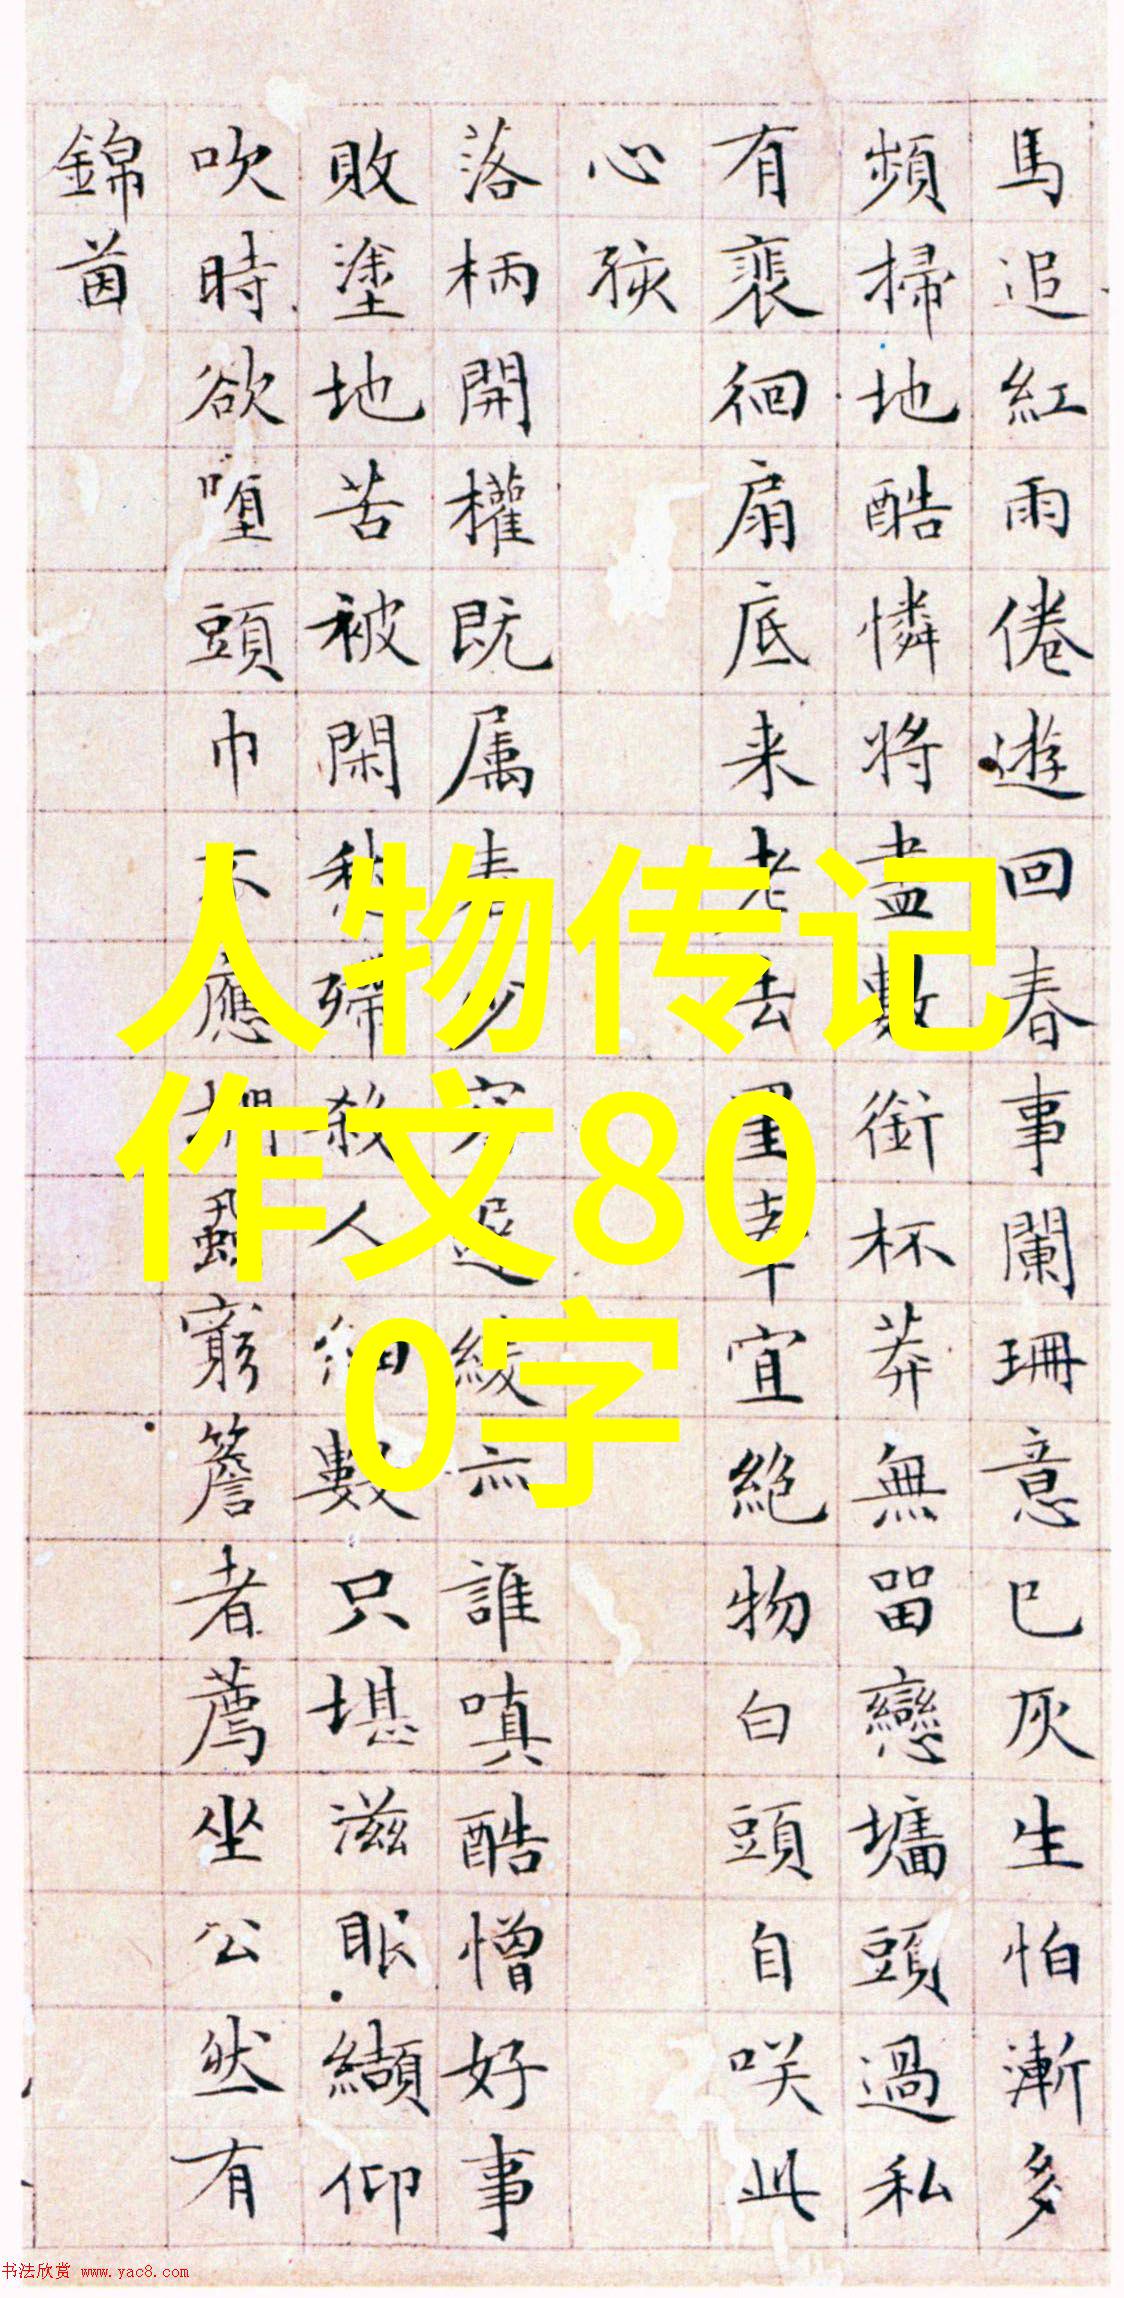 馬追紅雨倦遊回春事闌珊意已灰生怕漸多
頻掃地酷憐將盡數銜杯莽無留戀墻頭過私
有裴徊扇底来老去星幸宜絶物白頭自咲此
心孩
落柄開權既属春少容遲綾無誰嗔酷憎好事
敗塗地苦被閑愁殢殺人細數只堪滋眼纈仰
吹時欲墮頭巾不應捫蝨窮簷者薦坐公然有
錦茵
人物传记
作文80
0字
书法欣赏 www.yac8.com